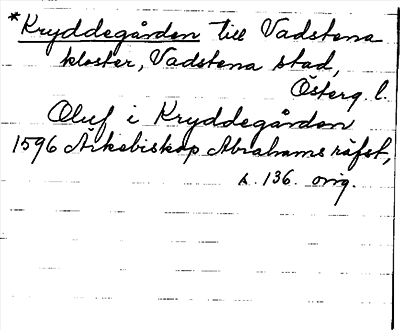 *Kryddegården till Vadstena
kloster, Vadstena stad,
Österg. l.
Oluf i Kryddegården
1596 Ärkebiskop Abrahams räfst,
s. 136. orig.